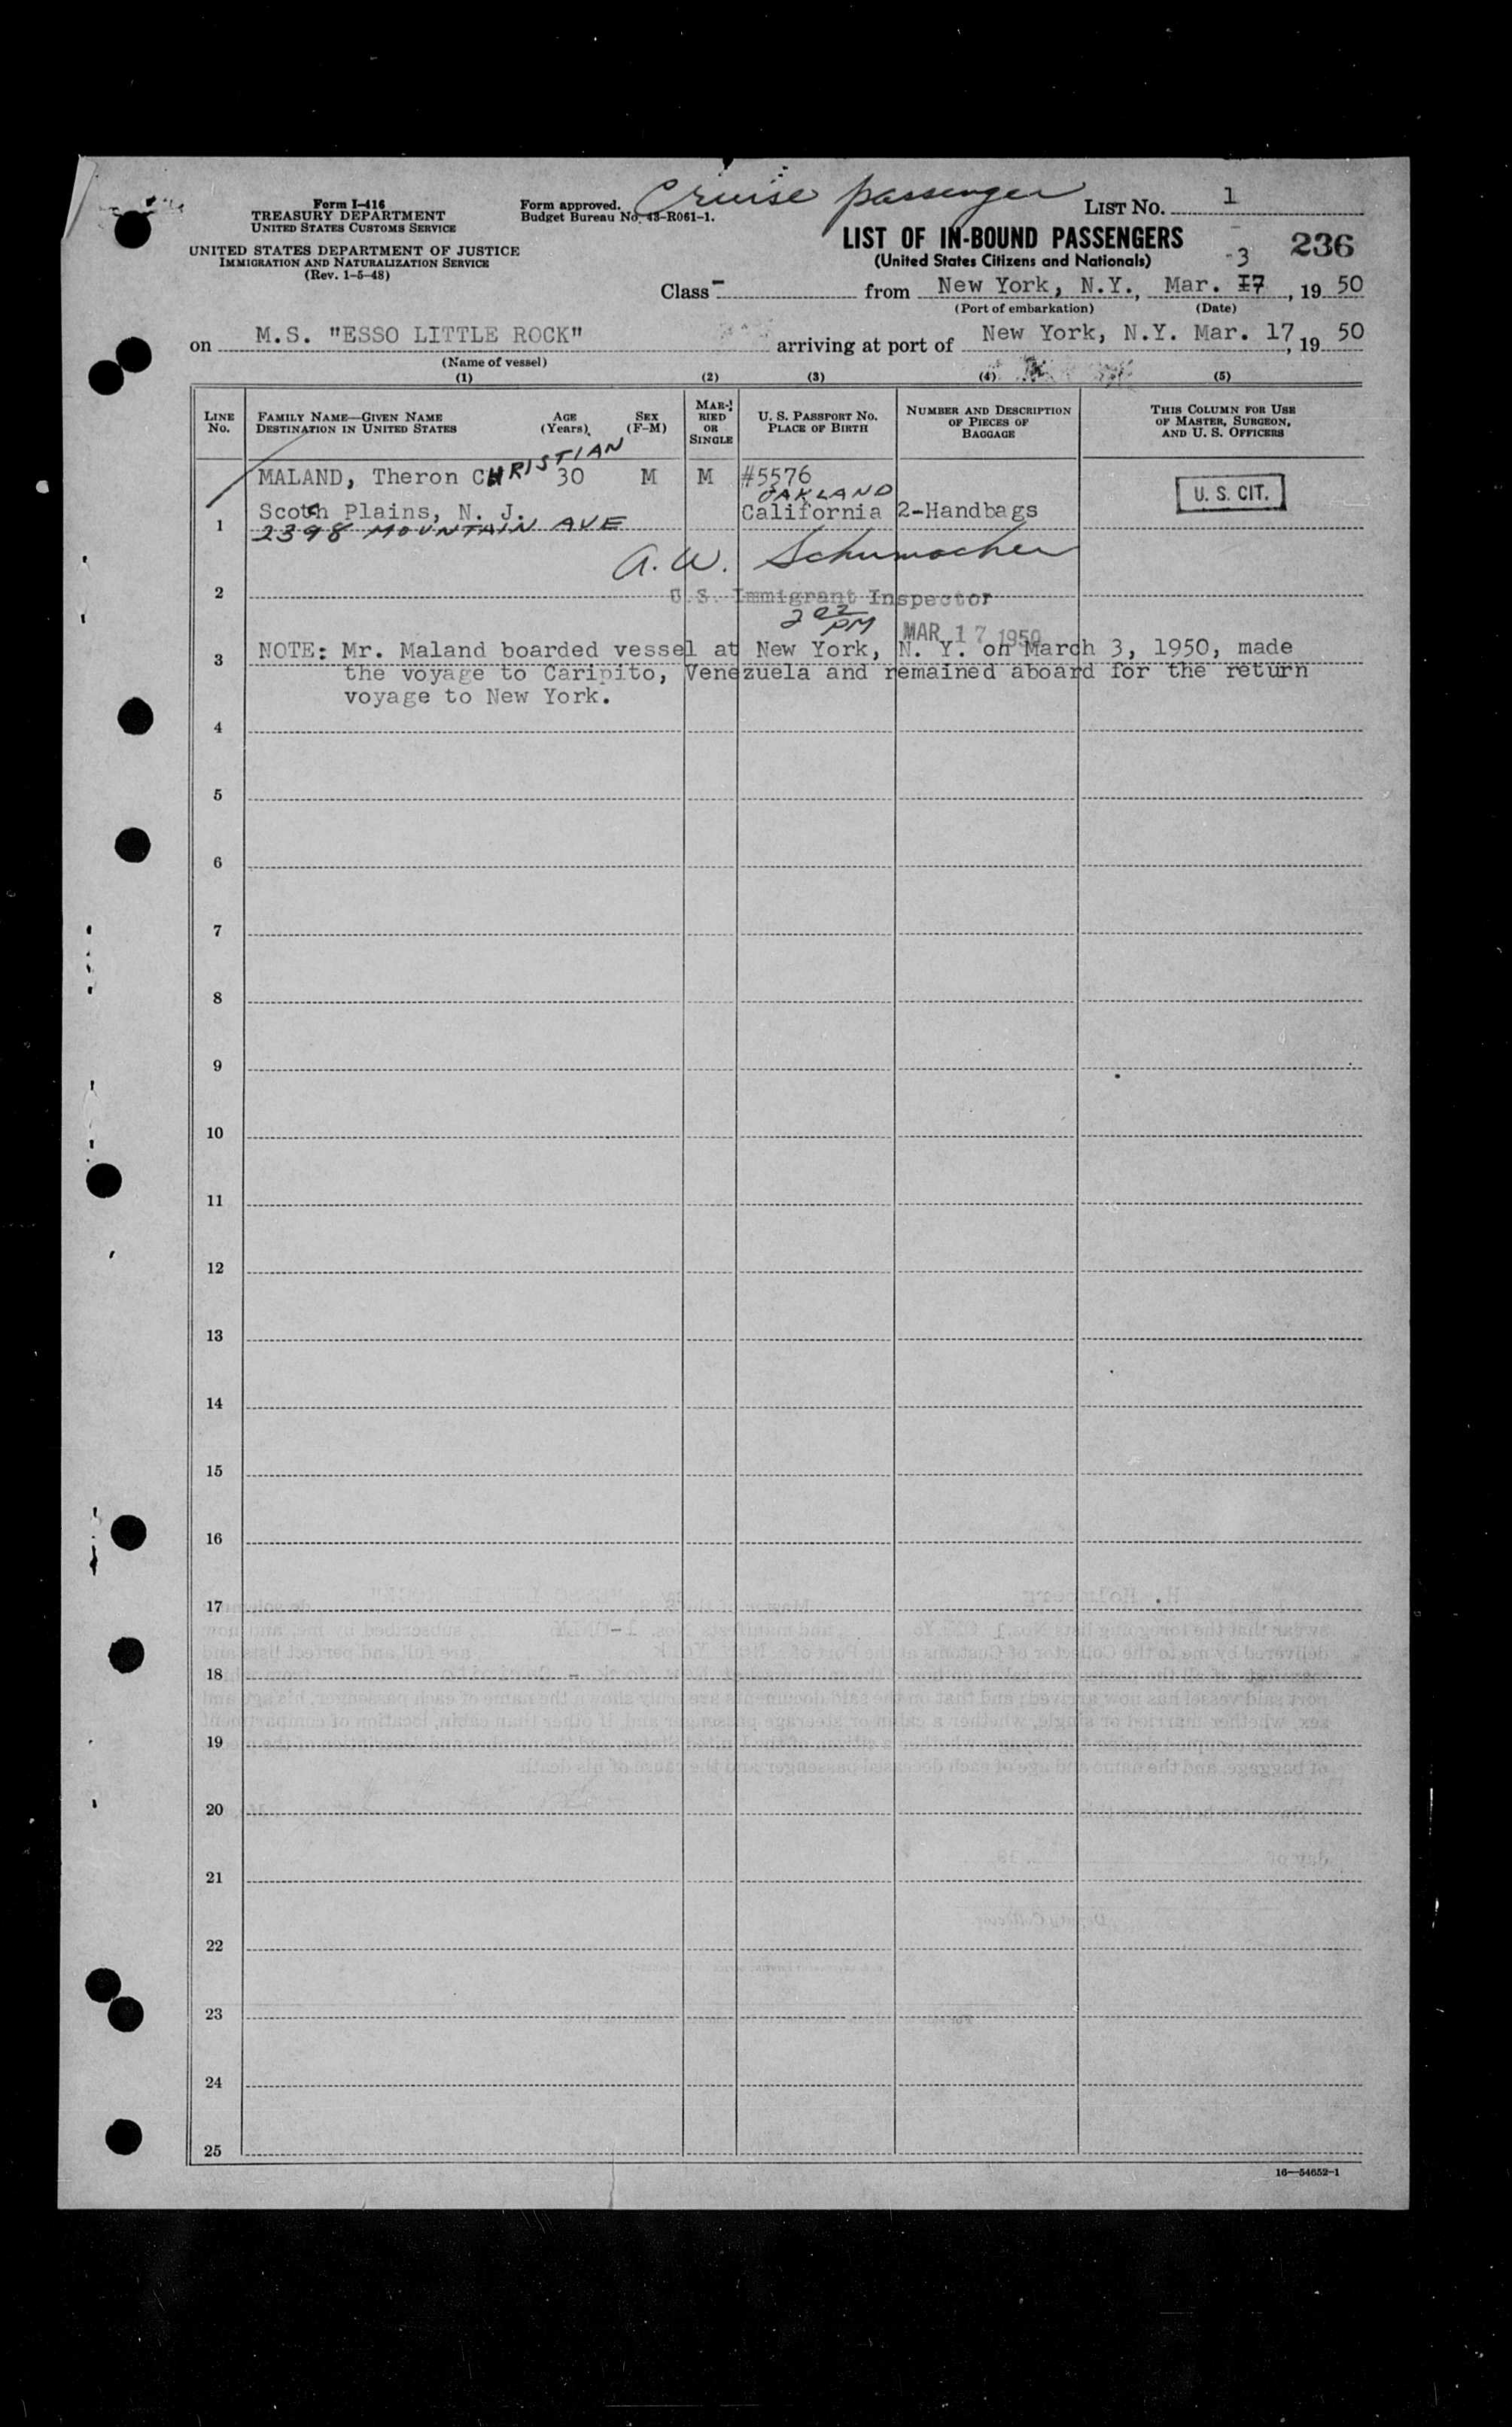 Cruise passenger
Form I-416
TREASURY DEPARTMENT
UNITED STATES CUSTOMS SERVICE
UNITED STATES DEPARTMENT OF JUSTICE
IMMIGRATION AND NATURALIZATION SERVICE
(Rev. 1-5-48)
Form approved.
Budget Bureau No. 43-R061-1.
LIST NO. 1
LIST OF IN-BOUND PASSENGERS
(United States Citizens and Nationals)
236
-3
Class - from New York, N.Y., Mar. 17, 19 50
(Port of embarkation) (Date)
on M.S. "ESSO LITTLE ROCK" arriving at port of New York, N.Y. Mar. 17, 19 50
(Name of vessel)
(1) (2) (3) (4) (5)
LINE NO.
FAMILY NAME—GIVEN NAME
DESTINATION IN UNITED STATES
AGE (Years)
SEX (F-M)
MARRIED OR SINGLE
U. S. PASSPORT NO.
PLACE OF BIRTH
NUMBER AND DESCRIPTION OF PIECES OF BAGGAGE
THIS COLUMN FOR USE OF MASTER, SURGEON, AND U. S. OFFICERS
MALAND, Theron CHRISTIAN 30 M M #5576
U. S. CIT.
OAKLAND
1 Scotch Plains, N. J. California 2-Handbags
2398 MOUNTAIN AVE
A. W. Schumacher
2 U.S. Immigrant Inspector
2 02 PM
MAR 17 1950
3 NOTE: Mr. Maland boarded vessel at New York, N. Y. on March 3, 1950, made
the voyage to Caripito, Venezuela and remained aboard for the return
voyage to New York.
4
5
6
7
8
9
10
11
12
13
14
15
16
17
18
19
20
21
22
23
24
25
16—54652-1